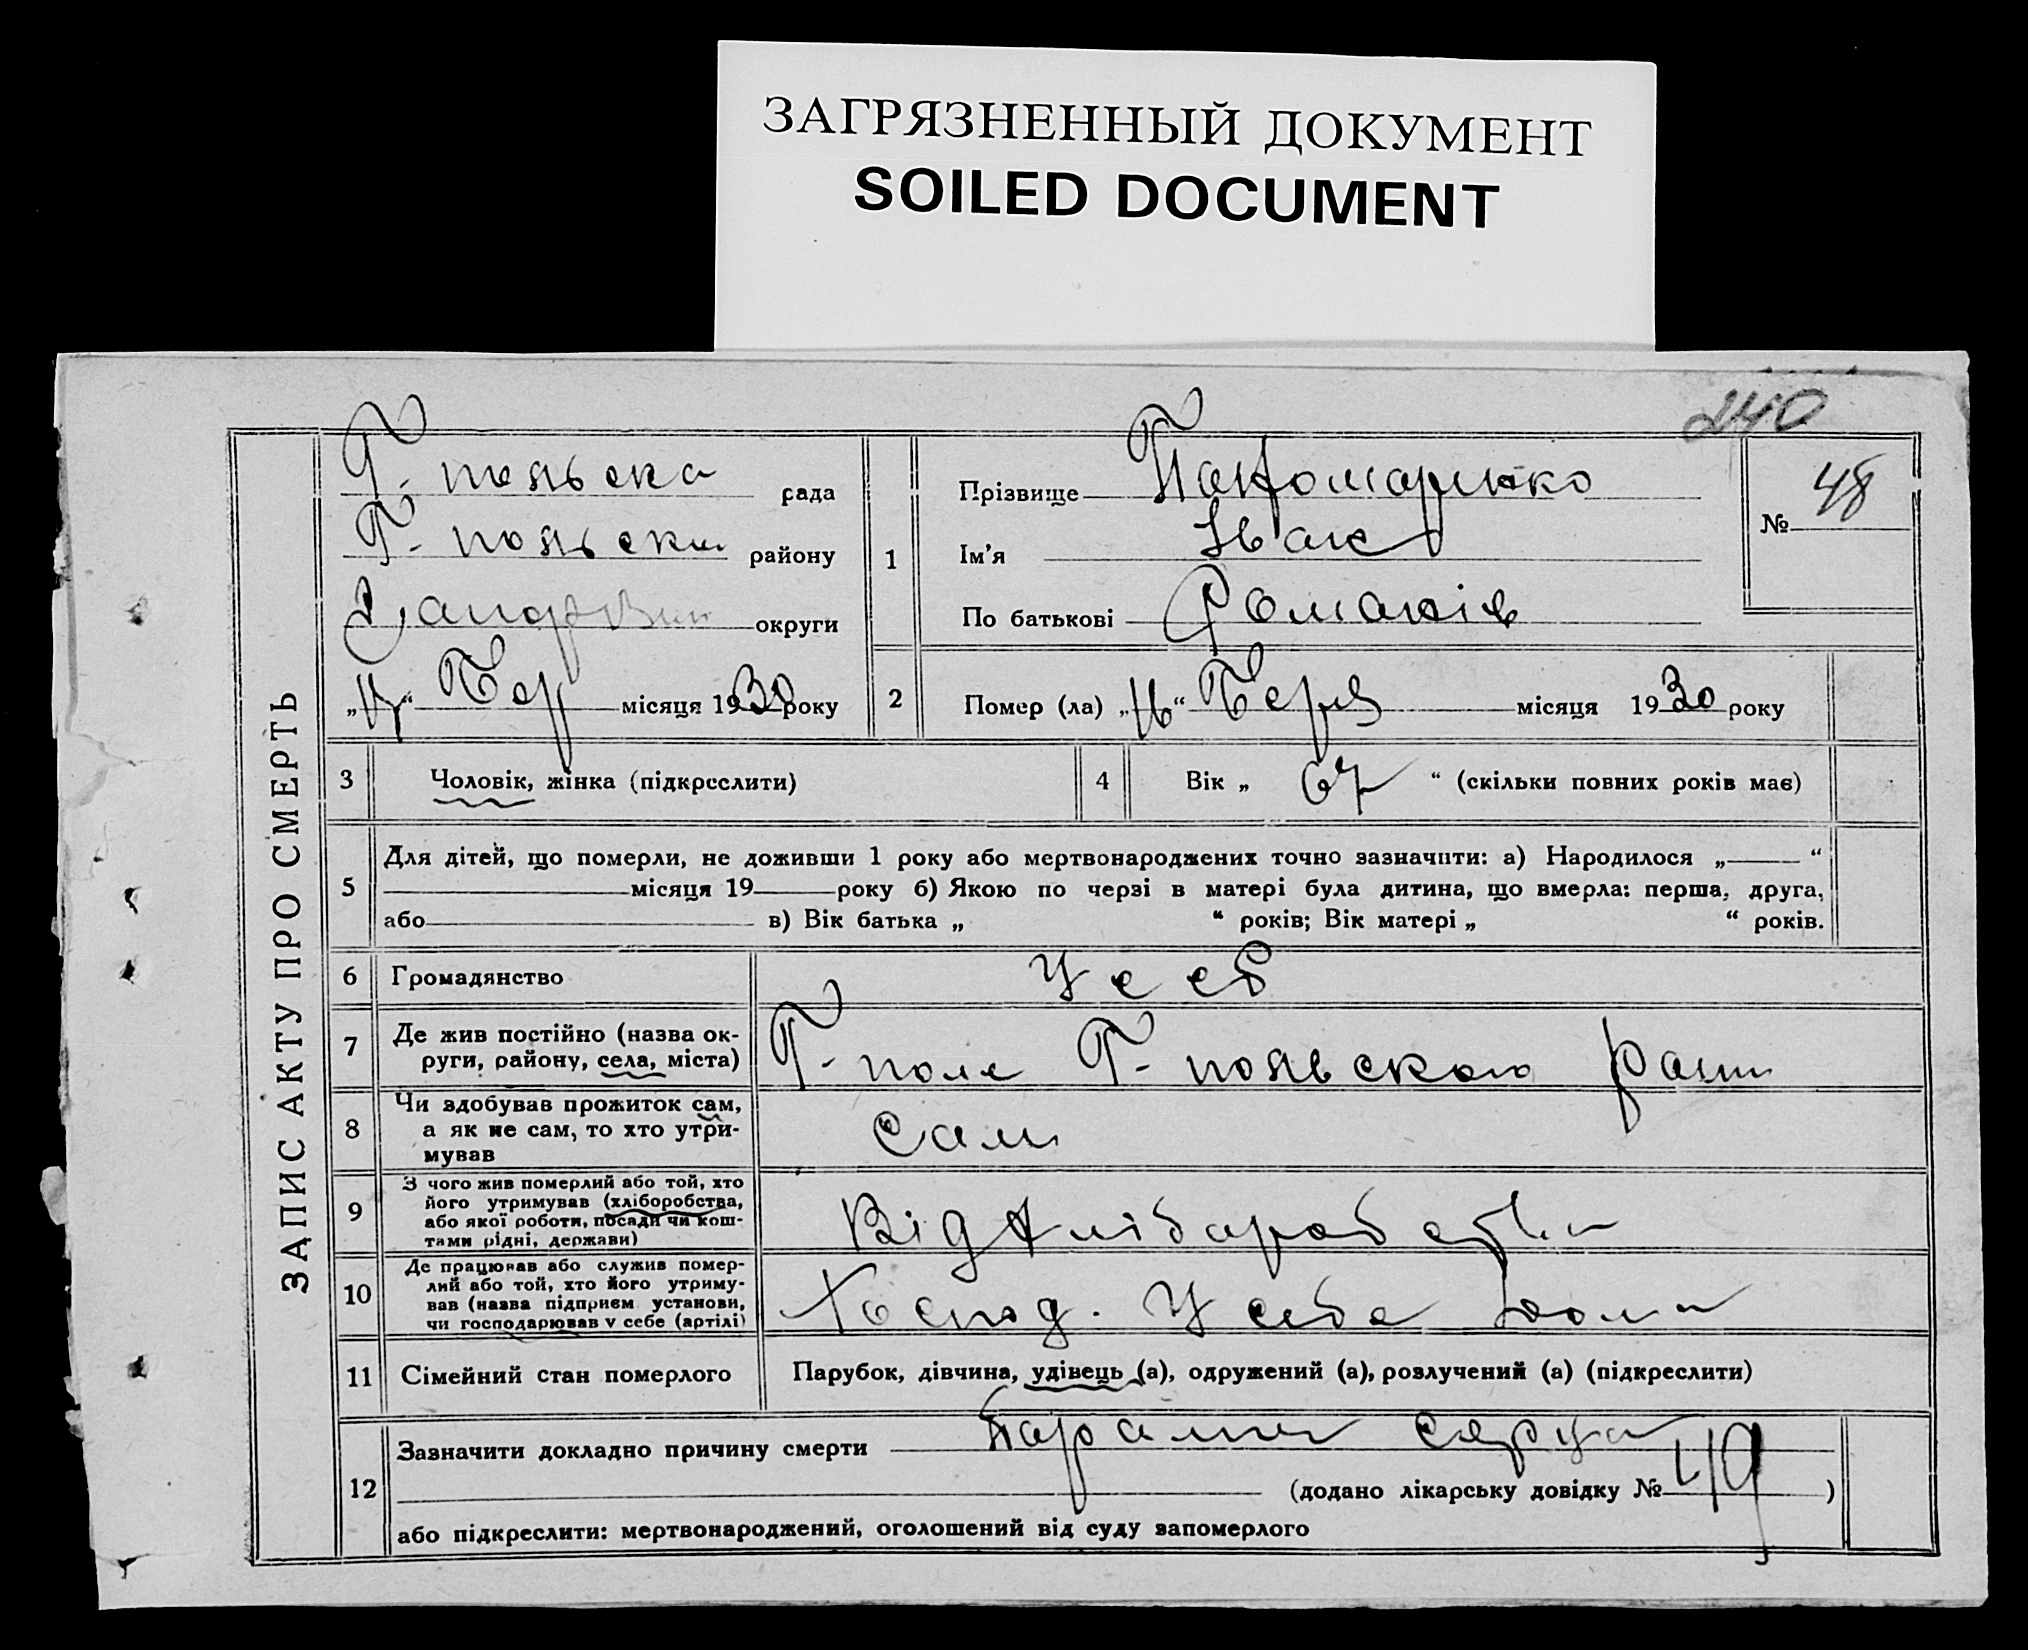 ЗАГРЯЗНЕННЫЙ ДОКУМЕНТ
SOILED DOCUMENT
240
ЗАПИС АКТУ ПРО СМЕРТЬ
Г-польска рада
Г-польски району
округи
місяця 1930 року
1
Прізвище Паномаренко
Ім'я Іван
По батькові Романів
№ 48
2
Помер (ла) „ “ місяця 1930 року
3
Чоловік, жінка (підкреслити)
4
Вік „ 67 “ (скільки повних років має)
5
Для дітей, що померли, не доживши 1 року або мертвонароджених точно зазначити: а) Народилося „ “
місяця 19 року б) Якою по черзі в матері була дитина, що вмерла: перша, друга,
або в) Вік батька „ “ років; Вік матері „ “ років.
6
Громадянство
Уссб
7
Де жив постійно (назва ок-
руги, району, села, міста)
Г-поле Г-польского
8
Чи здобував прожиток сам,
а як не сам, то хто утри-
мував
Сам
9
З чого жив померлий або той, хто
його утримував (хліборобства,
або якої роботи, посади чи кош-
тами рідні, держави)
Від
10
Де працював або служив помер-
лий або той, хто його утриму-
вав (назва підприєм. установи,
чи господарював у себе (артілі)
Господ. У себе дома
11
Сімейний стан померлого
Парубок, дівчина, удівець (а), одружений (а), розлучений (а) (підкреслити)
12
Зазначити докладно причину смерти серца
(додано лікарську довідку № 49 )
або підкреслити: мертвонароджений, оголошений від суду запомерлого